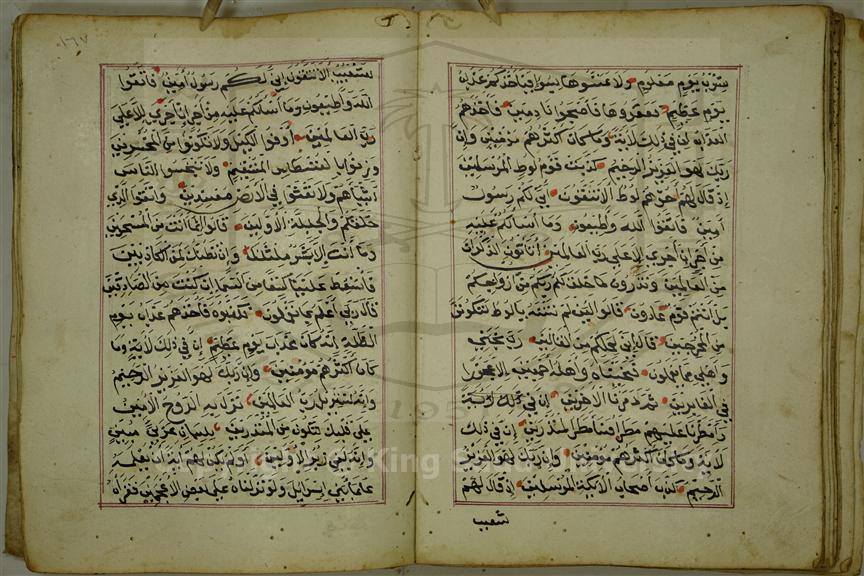 شرب يوم معلوم ولا تمسوها بسوء فياخذكم عذاب
يوم عظيم فعقروها فاصبحوا نادمين فاخذهم
العذاب ان في ذلك لاية وما كان اكثرهم مومنين وان
ربك لهو العزيز الرحيم كذبت قوم لوط المرسلين
اذ قال لهم اخوهم لوط الا تتقون اني لكم رسول
امين فاتقوا الله واطيعون وما اسالكم عليه
من اجر ان اجري الا على رب العالمين اتاتون الذكران
من العالمين وتذرون ما خلق لكم ربكم من ازواجكم
بل انتم قوم عادون قالوا لئن لم تنته يا لوط لتكونن
من المخرجين قال اني لعملكم من القالين رب نجني
واهلي مما يعملون فنجيناه واهله اجمعين الا عجوزا
في الغابرين ثم دمرنا الاخرين ان في ذلك لاية
وامطرنا عليهم مطرا فساء مطر المنذرين ان في ذلك
لاية وما كان اكثرهم مومنين وان ربك لهو العزيز
الرحيم كذب اصحاب الايكة المرسلين اذ قال لهم
شعيب
١٦٧
شعيب الا تتقون اني لكم رسول امين فاتقوا
الله واطيعون وما اسالكم عليه من اجر ان اجري الا على
رب العالمين اوفوا الكيل ولا تكونوا من المخسرين
وزنوا بالقسطاس المستقيم ولا تبخسوا الناس
اشياءهم ولا تعثوا في الارض مفسدين واتقوا الذي
خلقكم والجبلة الاولين قالوا انما انت من المسحرين
وما انت الا بشر مثلنا وان نظنك لمن الكاذبين
فاسقط علينا كسفا من السماء ان كنت من الصادقين
قال ربي اعلم بما تعملون فكذبوه فاخذهم عذاب يوم
الظلة انه كان عذاب يوم عظيم ان في ذلك لاية وما
كان اكثرهم مومنين وان ربك لهو العزيز الرحيم
وانه لتنزيل رب العالمين نزل به الروح الامين
على قلبك لتكون من المنذرين بلسان عربي مبين
وانه لفي زبر الاولين اولم يكن لهم اية ان يعلمه
علماء بني اسرائيل ولو نزلناه على بعض الاعجمين فقراه
King Saud University